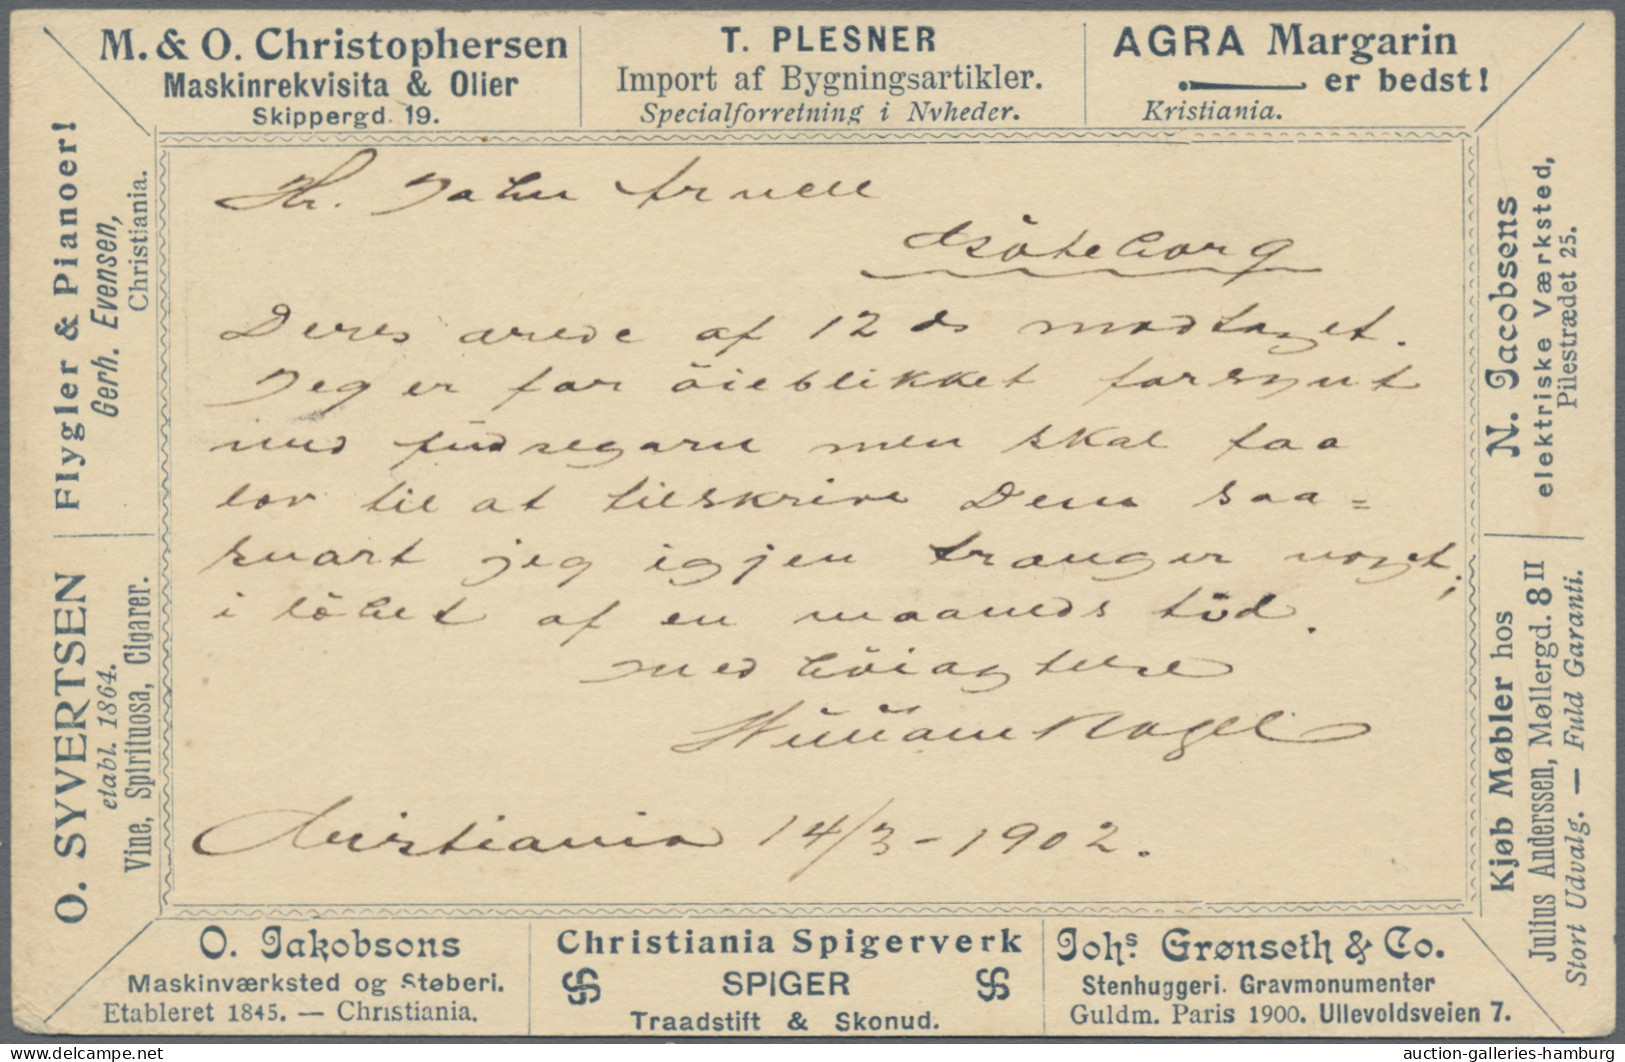 M. & O. Christophersen
Maskinrekvisita & Olier
Skippergd. 19.
T. PLESNER
Import af Bygningsartikler.
Specialforretning i Nyheder.
AGRA Margarin
er bedst!
Kristiania.
Flygler & Pianoer!
Gerh. Evensen,
Christiania.
O. SYVERTSEN
etabl. 1864.
Vine, Spirituosa, Cigarer.
Hr. John
Göteborg
Deres ærede af 12 ds modtaget.
Jeg er for öieblikket forsynt
med garn men skal taa
lov til at tilskrive Dem saa=
snart jeg igjen trænger noget,
i löbet af en maaneds tid.
med höiagtelse
Nagel
Christiania 14/3-1902.
N. Jacobsens
elektriske Værksted,
Pilestrædet 25.
Kjøb Møbler hos
Julius Anderssen, Møllergd. 8 II
Stort Udvalg. — Fuld Garanti.
O. Jakobsons
Maskinværksted og Støberi.
Etableret 1845. — Christiania.
Christiania Spigerverk
SPIGER
Traadstift & Skonud.
Johs. Grønseth & Co.
Stenhuggeri. Gravmonumenter
Guldm. Paris 1900. Ullevoldsveien 7.
www.delcampe.net
auction-galleries-hamburg